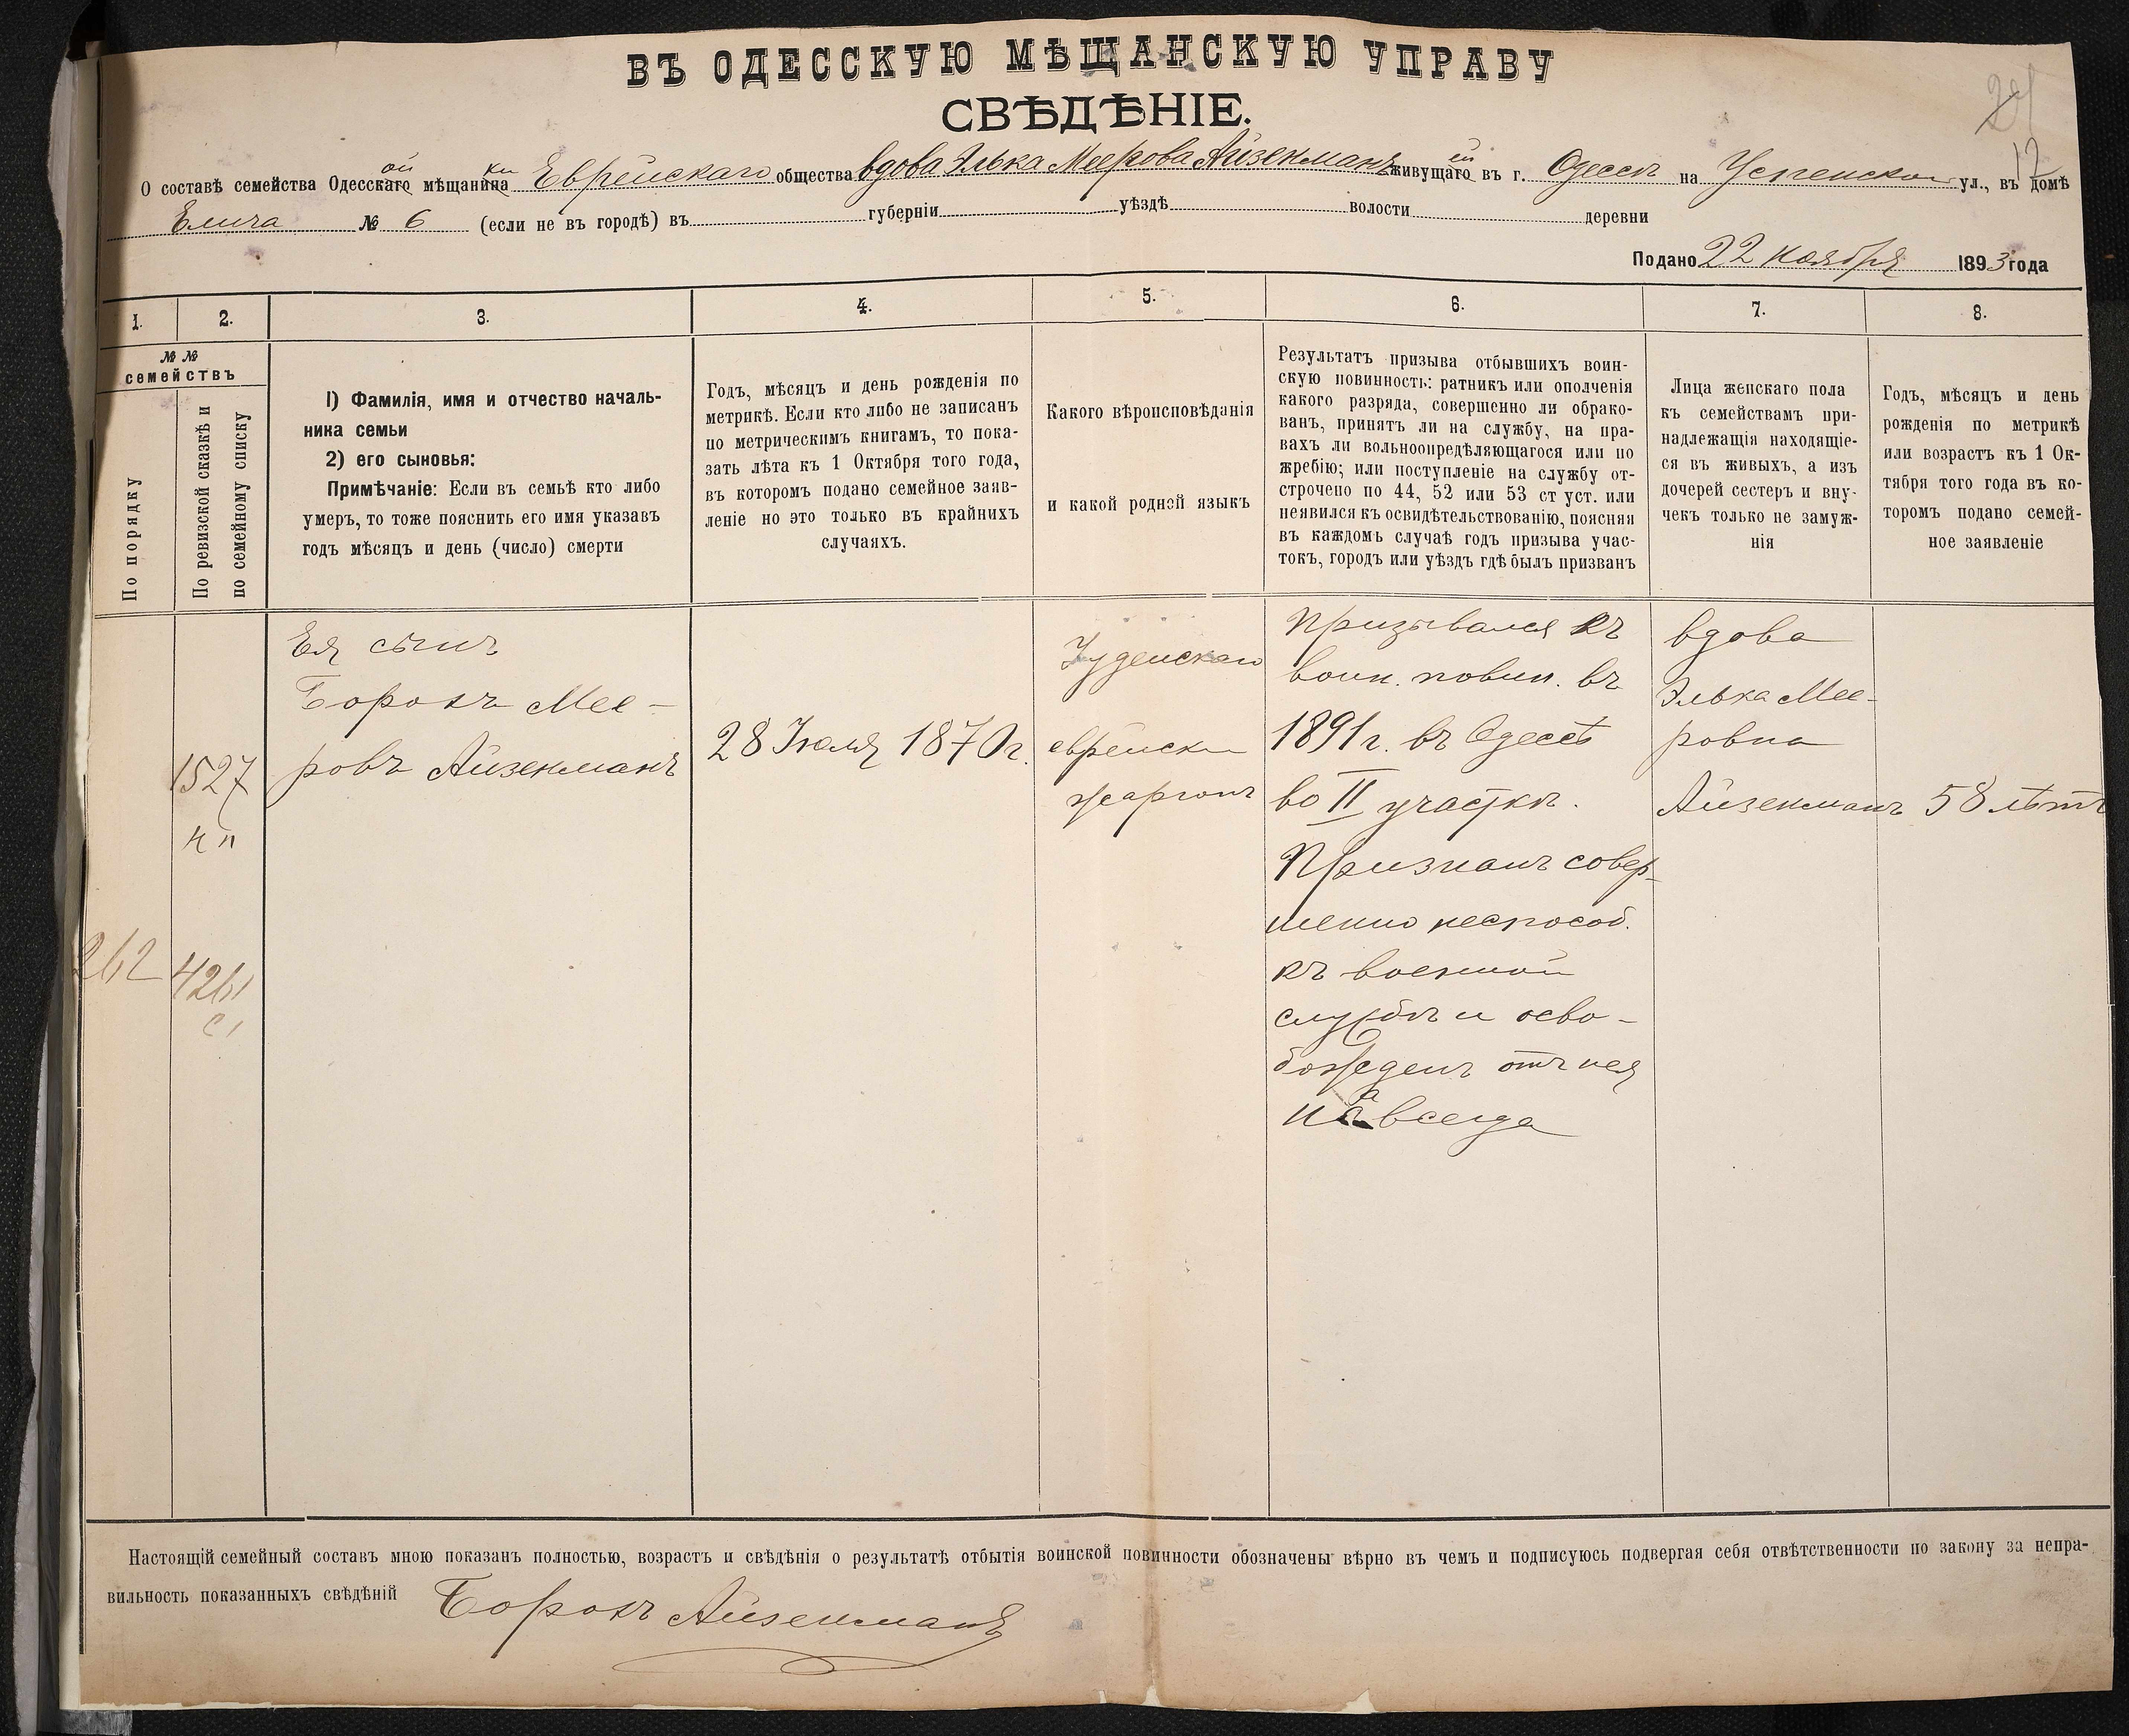 ВЪ ОДЕССКУЮ МѢЩАНСКУЮ УПРАВУ
СВѢДѢНІЕ.
12
О составѣ семейства Одесскаго ой мѣщанина ки Еврейскаго общества вдова Элька Меерова Айзенманъ живущаго ей въ г. Одессѣ на Успенской ул., въ домѣ
Елича № 6 (если не въ городѣ) въ губерніи уѣздѣ волости деревни
Подано 22 Ноября 1893 года
1. 2. 3. 4. 5. 6. 7. 8.
№ №
семействъ
По порядку
По ревизской сказкѣ и
по семейному списку
1) Фамилія, имя и отчество началь-
ника семьи
2) его сыновья:
Примѣчаніе: Если въ семьѣ кто либо
умеръ, то тоже пояснить его имя указавъ
годъ мѣсяцъ и день (число) смерти
Годъ, мѣсяцъ и день рожденія по
метрикѣ. Если кто либо не записанъ
по метрическимъ книгамъ, то пока-
зать лѣта къ 1 Октября того года,
въ которомъ подано семейное заяв-
леніе но это только въ крайнихъ
случаяхъ.
Какого вѣроисповѣданія
и какой родной языкъ
Результатъ призыва отбывшихъ воин-
скую повинность: ратникъ или ополченія
какого разряда, совершенно ли обрако-
ванъ, принятъ ли на службу, на пра-
вахъ ли вольноопредѣляющагося или по
жребію; или поступленіе на службу от-
строчено по 44, 52 или 53 ст уст. или
неявился къ освидѣтельствованію, поясняя
въ каждомъ случаѣ годъ призыва учас-
токъ, городъ или уѣздъ гдѣ былъ призванъ
Лица женскаго пола
къ семействамъ при-
надлежащія находящіе-
ся въ живыхъ, а изъ
дочерей сестеръ и вну-
чекъ только не замуж-
нія
Годъ, мѣсяцъ и день
рожденія по метрикѣ
или возрастъ къ 1 Ок-
тября того года въ ко-
торомъ подано семей-
ное заявленіе
262
1527
4261
Ея сынъ
Борохъ Мее-
ровъ Айзенманъ
28 Іюля 1870 г.
Іудейскаго
еврейскій
жаргонъ
Призывался къ
воин. повин. въ
1891 г. въ Одессѣ
во II участкѣ.
Признанъ совер-
шенно неспособ.
къ военной
службѣ и осво-
божденъ отъ нея
навсегда
вдова
Элька Мее-
ровна
Айзенманъ
58 лѣтъ
Настоящій семейный составъ мною показанъ полностью, возрастъ и свѣдѣнія о результатѣ отбытія воинской повинности обозначены вѣрно въ чемъ и подписуюсь подвергая себя отвѣтственности по закону за непра-
вильность показанныхъ свѣдѣній Борохъ Айзенманъ